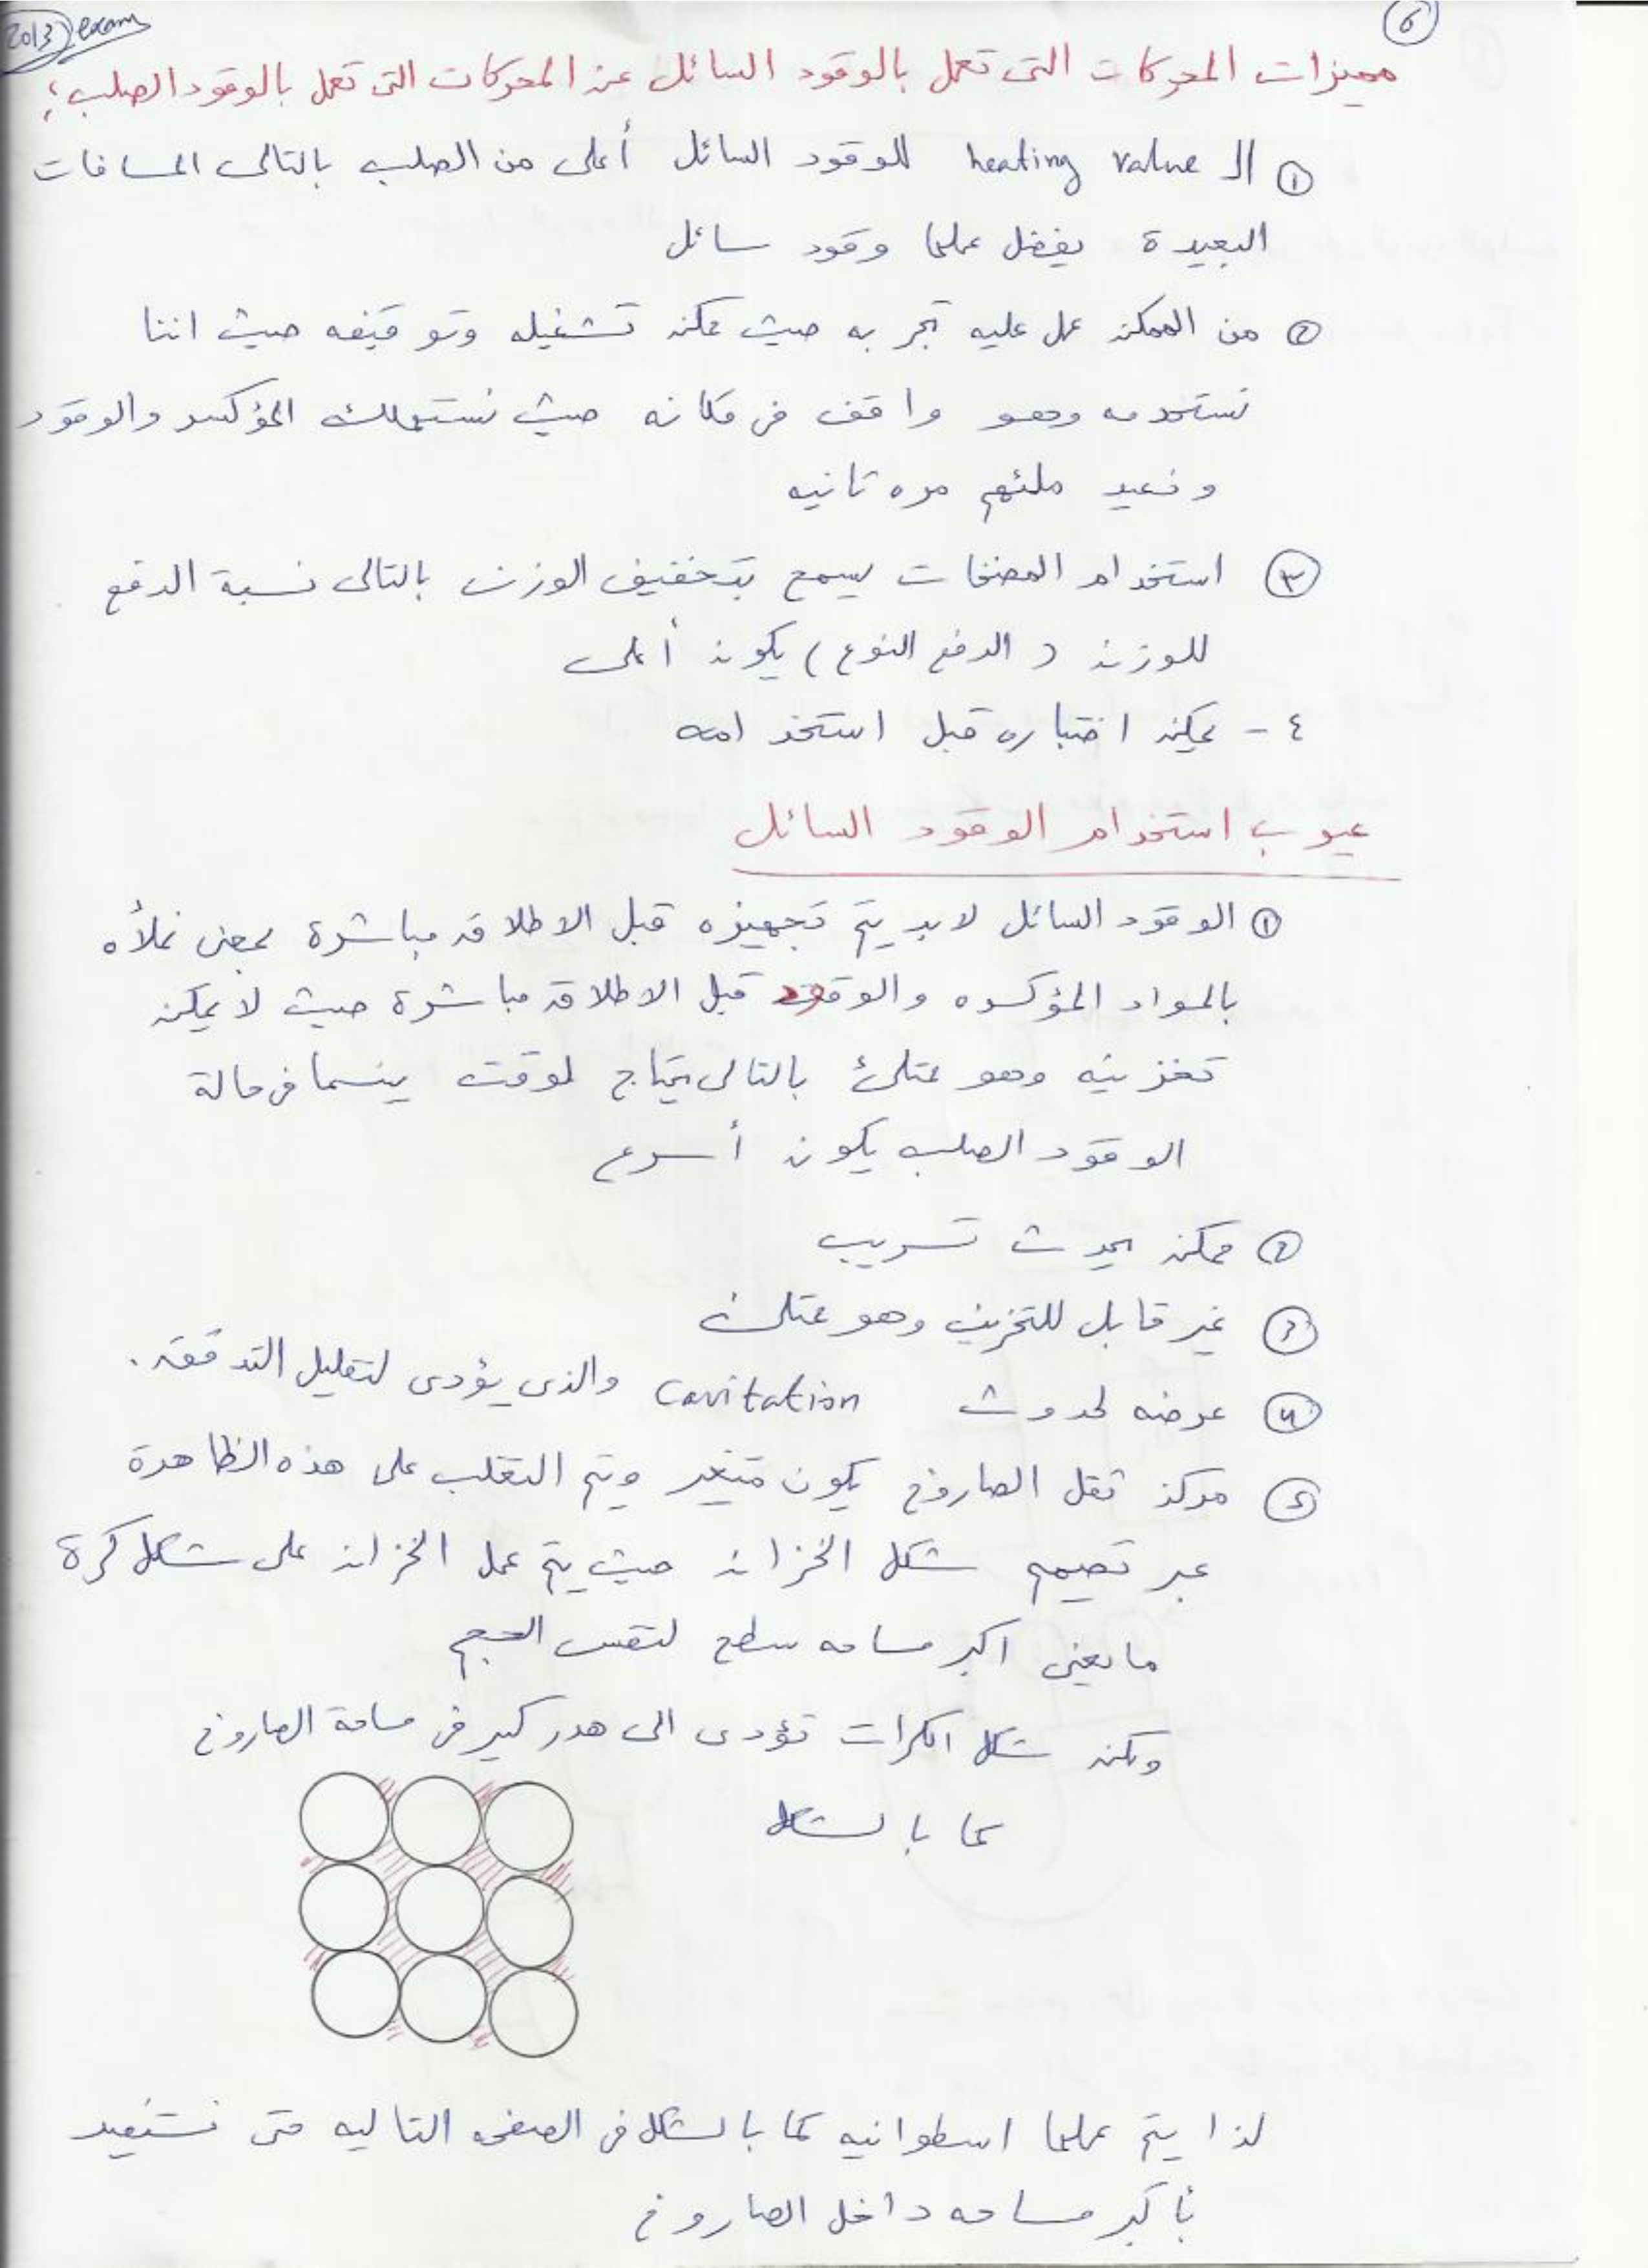 2013 exam
6
مميزات المحركات التى تعمل بالوقود السائل عن المحركات التى تعمل بالوقود الصلب؛
① الـ heating value للوقود السائل أعلى من الصلب بالتالى المسافات
البعيدة يفضل عملها وقود سائل
② من الممكن عمل عليه تجربه حيث يمكن تشغيله وتوقيفه حيث اننا
نستخدمه وهو واقف فى مكانه حيث نستهلك المؤكسد والوقود
ونعيد ملئهم مره تانيه
③ استخدام المضخات يسمح بتخفيف الوزن بالتالى نسبة الدفع
للوزن (الدفع النوعى) يكون أعلى
٤ - يمكن اختباره قبل استخدامه
عيوب استخدام الوقود السائل
① الوقود السائل لابد يتم تجهيزه قبل الاطلاق مباشرة بمعنى نملأه
بالمواد المؤكسده والوقود قبل الاطلاق مباشرة حيث لا يمكن
تخزينه وهو ممتلئ بالتالى يحتاج لوقت بينما فى حالة
الوقود الصلب يكون أسرع
② ممكن يحدث تسريب
③ غير قابل للتخزين وهو ممتلئ
④ عرضه لحدوث Cavitation والذى يؤدى لتقليل التدفق.
⑤ مركز ثقل الصاروخ يكون متغير ويتم التغلب على هذه الظاهرة
عبر تصميم شكل الخزان حيث يتم عمل الخزان على شكل كرة
مايعنى اكبر مساحه سطح لنفس الحجم
ولكن شكل الكرات تؤدى الى هدر كبير فى مساحة الصاروخ
كما بالشكل
لذا يتم عملها اسطوانيه كما بالشكل فى الصفحه التاليه حتى نستفيد
بأكبر مساحه داخل الصاروخ